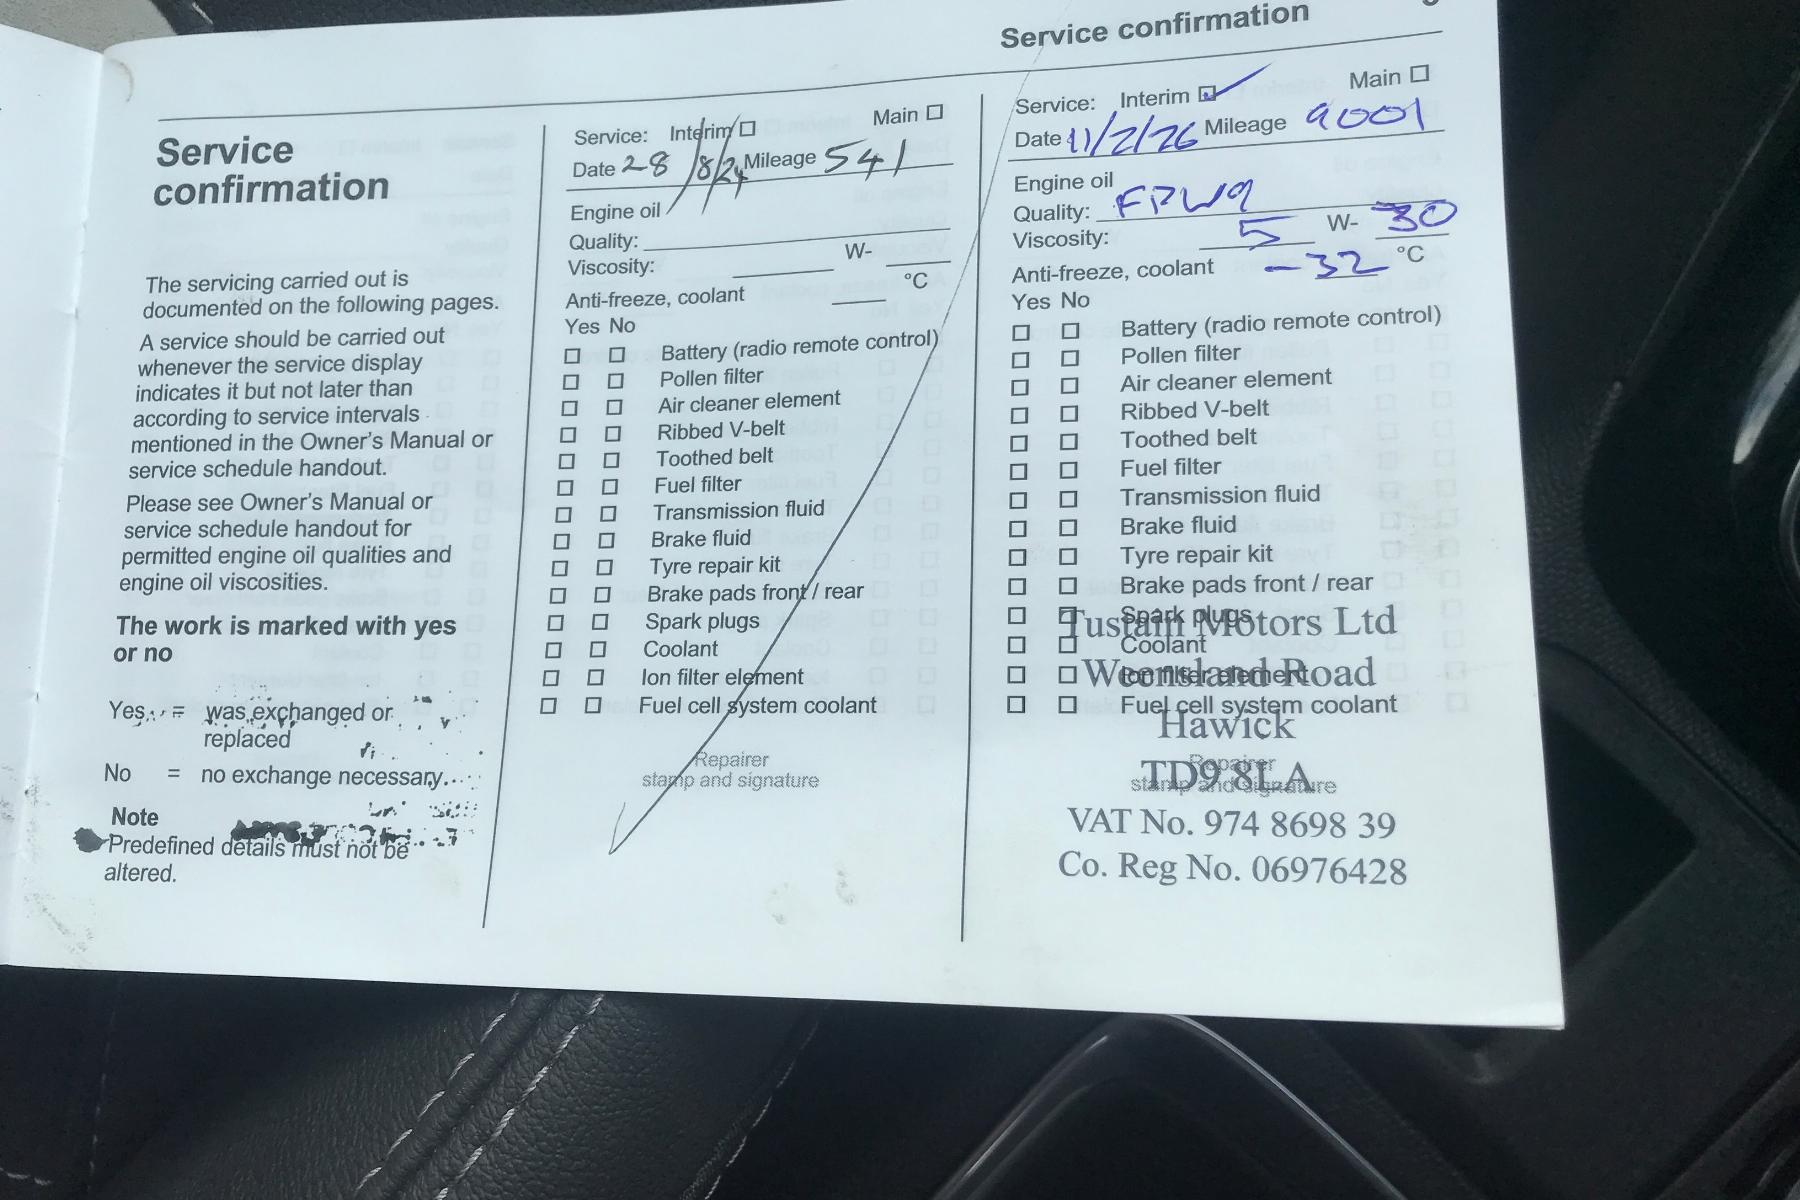 Service confirmation
Service
confirmation
The servicing carried out is
documented on the following pages.
A service should be carried out
whenever the service display
indicates it but not later than
according to service intervals
mentioned in the Owner's Manual or
service schedule handout.
Please see Owner's Manual or
service schedule handout for
permitted engine oil qualities and
engine oil viscosities.
The work is marked with yes
or no
Yes = was exchanged or
replaced
No = no exchange necessary.
Note
Predefined details must not be
altered.
Service: Interim Main
Date 28/8/24 Mileage 541
Engine oil
Quality:
Viscosity: W-
Anti-freeze, coolant °C
Yes No
Battery (radio remote control)
Pollen filter
Air cleaner element
Ribbed V-belt
Toothed belt
Fuel filter
Transmission fluid
Brake fluid
Tyre repair kit
Brake pads front / rear
Spark plugs
Coolant
Ion filter element
Fuel cell system coolant
Repairer
stamp and signature
Service: Interim Main
Date 11/2/26 Mileage 9001
Engine oil
Quality:
Viscosity: 5 W- 30
Anti-freeze, coolant -32 °C
Yes No
Battery (radio remote control)
Pollen filter
Air cleaner element
Ribbed V-belt
Toothed belt
Fuel filter
Transmission fluid
Brake fluid
Tyre repair kit
Brake pads front / rear
Spark plugs
Tustain Motors Ltd
Coolant
Weensland Road
Ion filter element
Fuel cell system coolant
Hawick
Repairer
TD9 8LA
stamp and signature
VAT No. 974 8698 39
Co. Reg No. 06976428